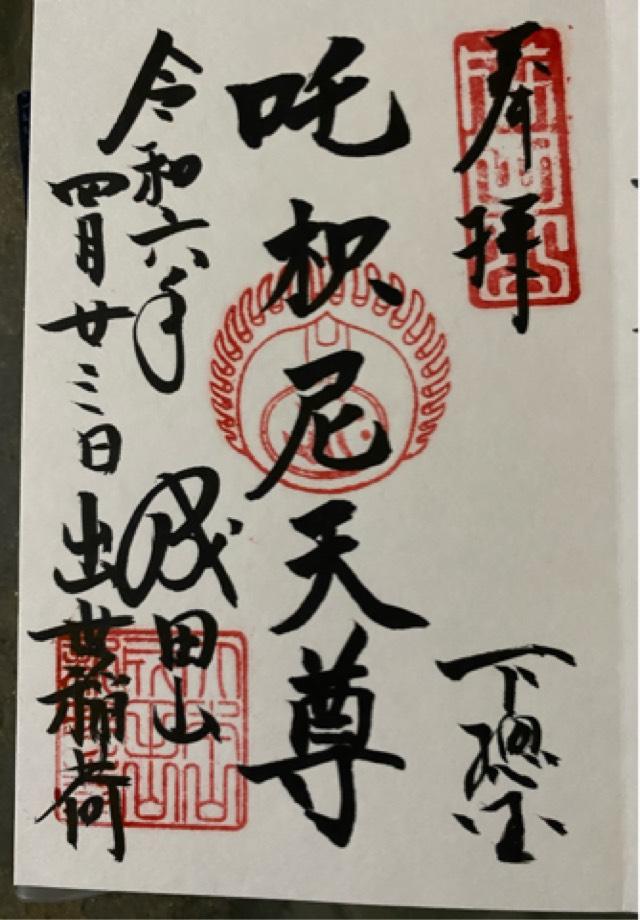 奉拝
下総国
吒枳尼天尊
令和六年
四月廿三日
成田山
出世稲荷